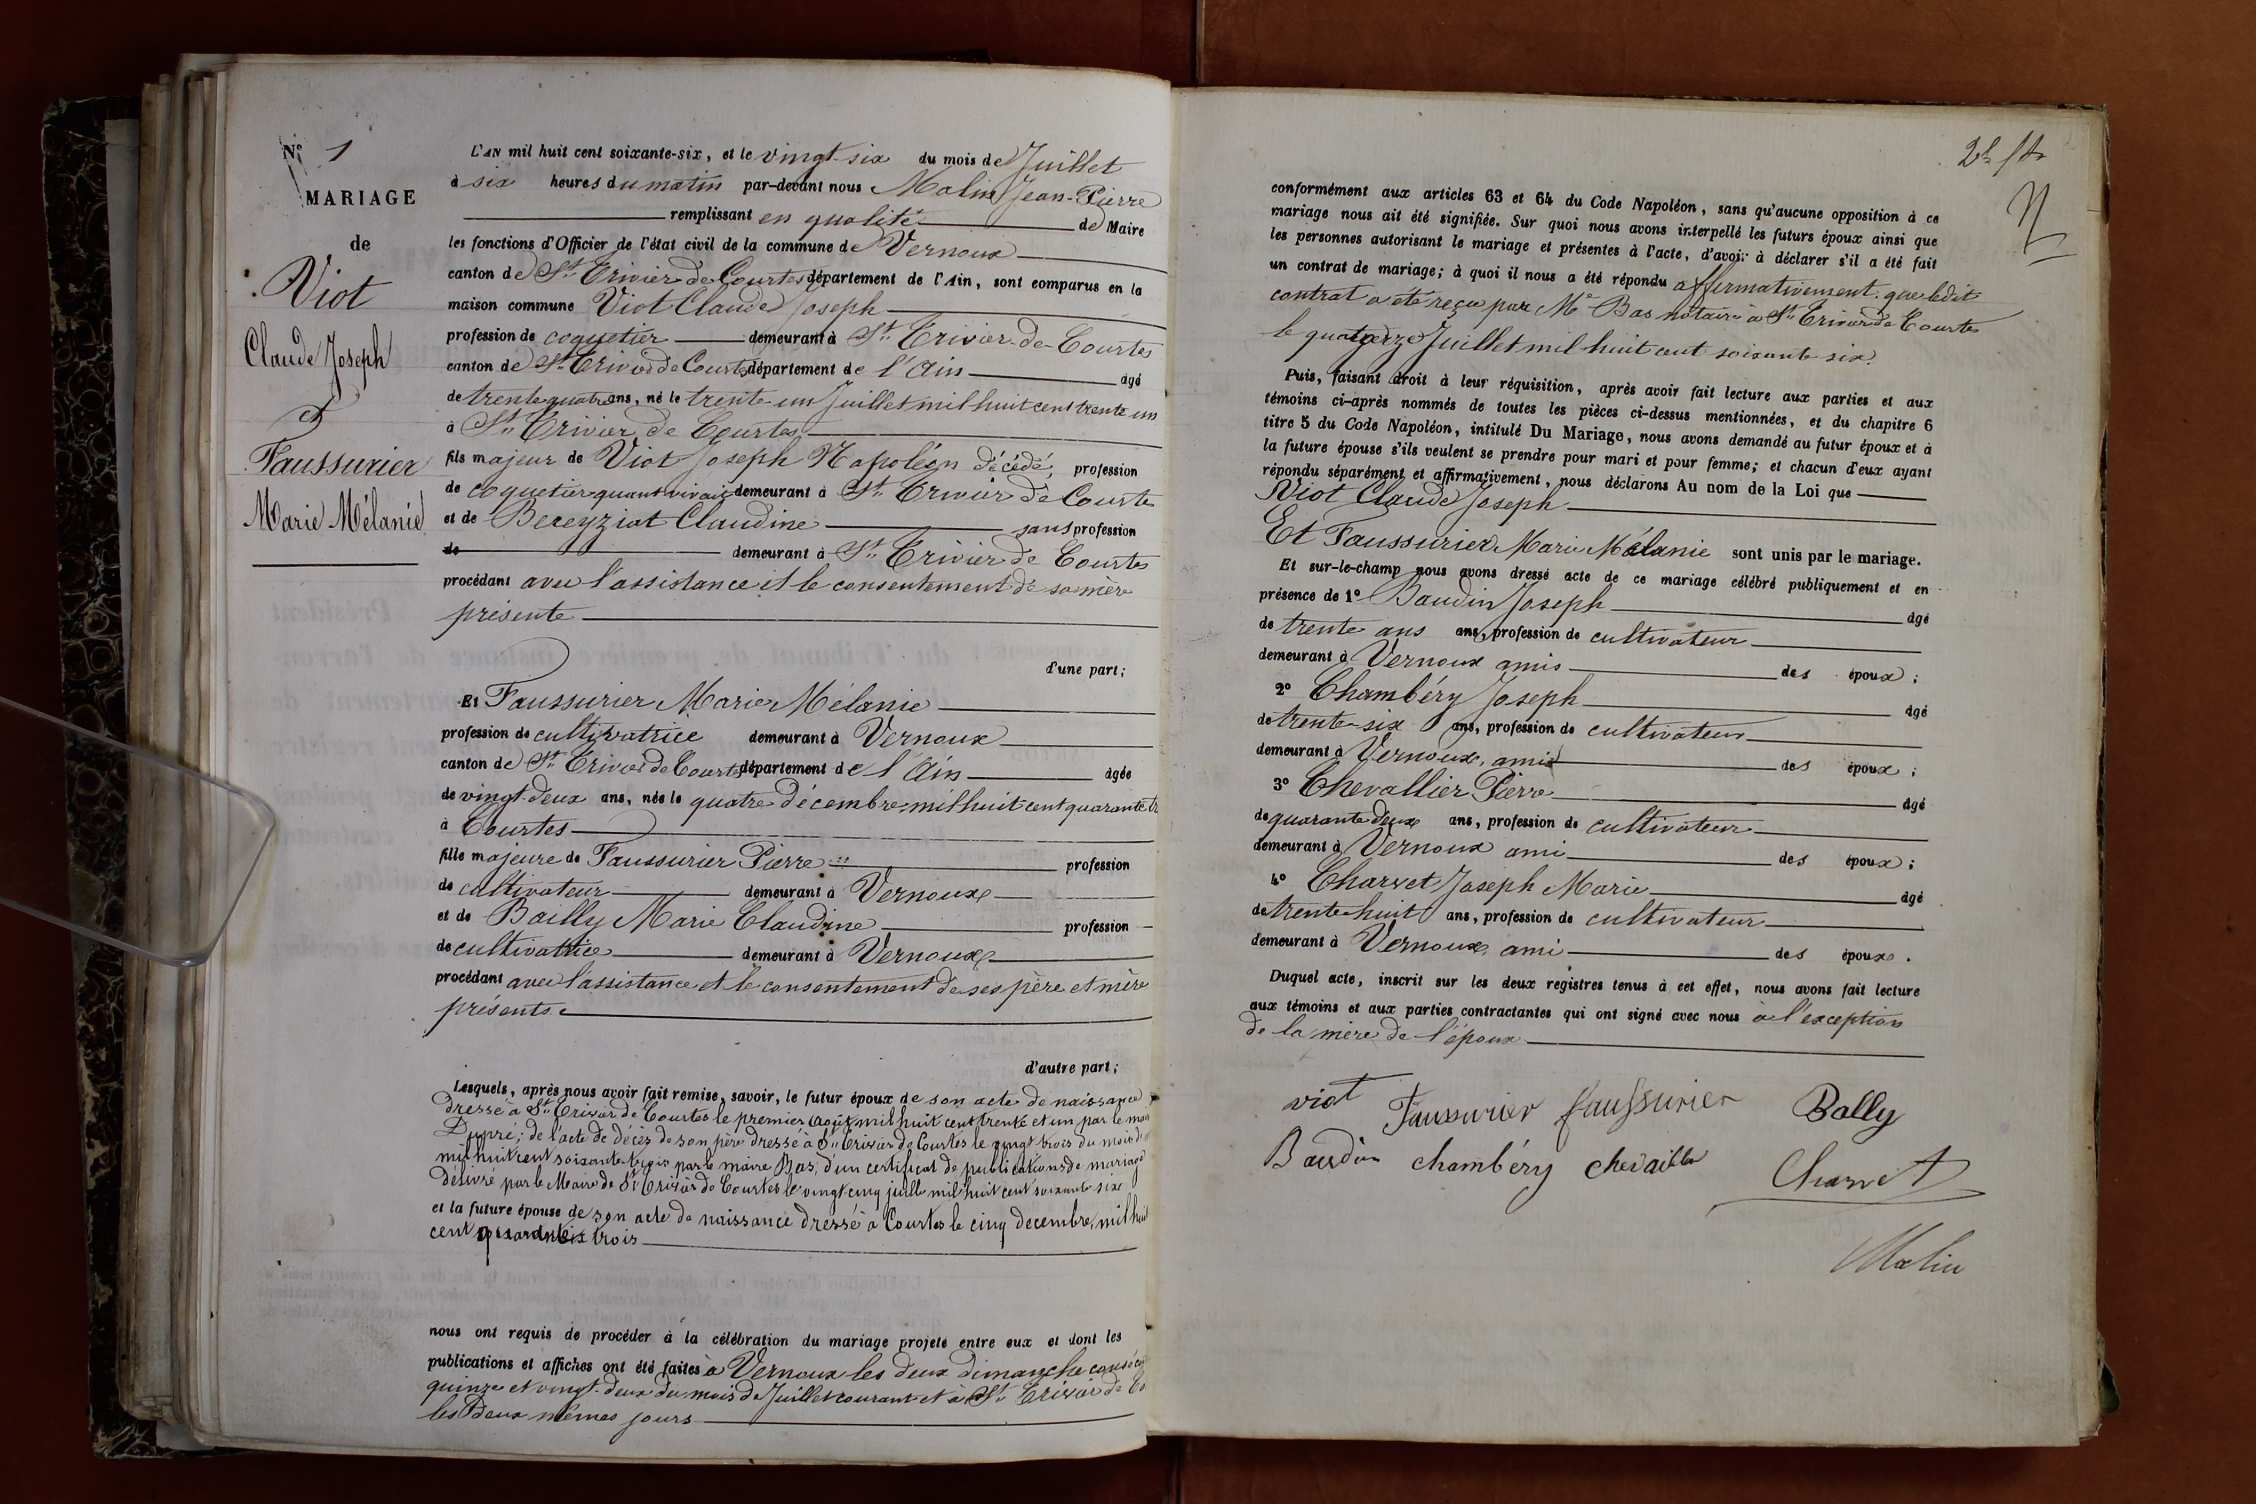 N° 1
MARIAGE
de
Viot
Claude Joseph
et
Faussurier
Marie Mélanie
L'AN mil huit cent soixante-six, et le vingt-six du mois de Juillet
à six heures du matin par-devant nous Malin Jean-Pierre
remplissant en qualité de Maire
les fonctions d'Officier de l'état civil de la commune de Vernoux
canton de St Trivier de Courtes département de l'Ain, sont comparus en la
maison commune Viot Claude Joseph
profession de coquetier demeurant à St Trivier de Courtes
canton de St Trivier de Courtes département de l'Ain âgé
de trente quatre ans, né le trente un Juillet mil huit cent trente un
à St Trivier de Courtes
fils majeur de Viot Joseph Napoléon décédé, profession
de coquetier quant vivait demeurant à St Trivier de Courte
et de Bereyziat Claudine sans profession
de demeurant à St Trivier de Courtes
procédant avec l'assistance et le consentement de sa mère
présente
d'une part;
Et Faussurier Marie Mélanie
profession de cultivatrice demeurant à Vernoux
canton de St Trivier de Courtes département de l'Ain âgée
de vingt-deux ans, née le quatre décembre mil huit cent quarante tr
à Courtes
fille majeure de Faussurier Pierre profession
de cultivateur demeurant à Vernoux
et de Bailly Marie Claudine profession
de cultivatrice demeurant à Vernoux
procédant avec l'assistance et le consentement de ses père et mère
présents.
d'autre part;
Lesquels, après nous avoir fait remise, savoir, le futur époux de son acte de naissance
dressé à St Trivier de Courtes le premier août mil huit cent trente et un par le maire
Dupré; de l'acte de décès de son père dressé à St Trivier de Courtes le vingt trois du mois d
mil huit cent soixante trois par le maire Bas, d'un certificat de publications de mariage
délivré par le Maire de St Trivier de Courtes le vingt cinq juille mil huit cent soixante six
et la future épouse de son acte de naissance dressé à Courtes le cinq decembre, mil huit
cent quarante trois
nous ont requis de procéder à la célébration du mariage projeté entre eux et dont les
publications et affiches ont été faites à Vernoux les deux dimanche consécu
quinze et vingt-deux du mois de Juillet courant et à St Trivier de Co
les Deux mêmes jours
conformément aux articles 63 et 64 du Code Napoléon, sans qu'aucune opposition à ce
mariage nous ait été signifiée. Sur quoi nous avons interpellé les futurs époux ainsi que
les personnes autorisant le mariage et présentes à l'acte, d'avoir à déclarer s'il a été fait
un contrat de mariage; à quoi il nous a été répondu affirmativement. que ledit
contrat a été reçu par Me Bas notaire à St Trivier de Courtes
le quatorze Juillet mil huit cent soixante six.
Puis, faisant droit à leur réquisition, après avoir fait lecture aux parties et aux
témoins ci-après nommés de toutes les pièces ci-dessus mentionnées, et du chapitre 6
titre 5 du Code Napoléon, intitulé Du Mariage, nous avons demandé au futur époux et à
la future épouse s'ils veulent se prendre pour mari et pour femme; et chacun d'eux ayant
répondu séparément et affirmativement, nous déclarons Au nom de la Loi que
Viot Claude Joseph
Et Faussurier Marie Mélanie sont unis par le mariage.
Et sur-le-champ nous avons dressé acte de ce mariage célébré publiquement et en
présence de 1° Baudin Joseph âgé
de trente ans ans, profession de cultivateur
demeurant à Vernoux amis des époux;
2° Chambéry Joseph âgé
de trente-six ans, profession de cultivateur
demeurant à Vernoux, ami des époux;
3° Chevallier Pierre âgé
de quarante deux ans, profession de cultivateur
demeurant à Vernoux ami des époux;
4° Charvet Joseph Marie âgé
de trente huit ans, profession de cultivateur
demeurant à Vernoux, ami des époux.
Duquel acte, inscrit sur les deux registres tenus à cet effet, nous avons fait lecture
aux témoins et aux parties contractantes qui ont signé avec nous à l'exception
de la mère de l'époux
viot Faussurier faussurier Bally
Baudin chambéry chevallier Charvet
Malin